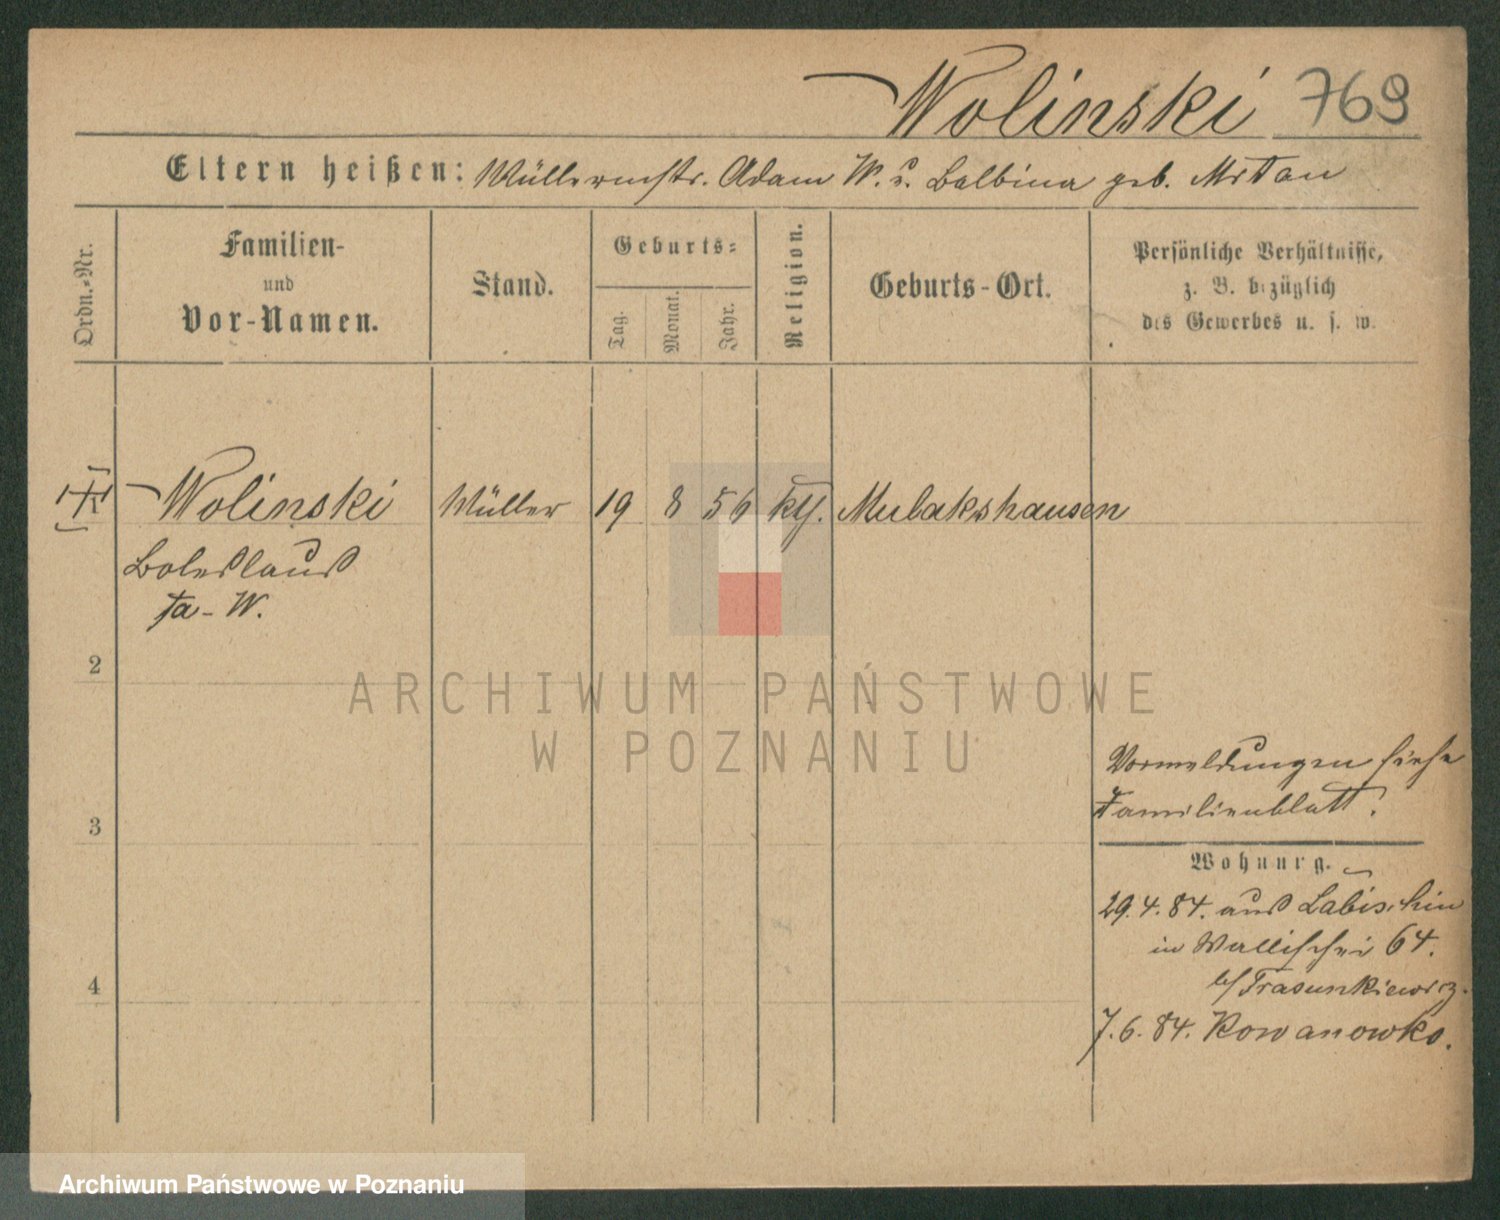 Wolinski 769
Eltern heißen: Müllermstr. Adam W. u. Balbina geb.
Ordn.-Nr.
Familien-
und
Vor-Namen.
Stand.
Geburts-
Tag.
Monat.
Jahr.
Religion.
Geburts-Ort.
Persönliche Verhältnisse,
z. B. bezüglich
des Gewerbes u. s. w.
Wolinski Müller 19 8 56 kth. Mulakshausen
Boleslaus
W.
2
ARCHIWUM PAŃSTWOWE
W POZNANIU
Vormeldungen siehe
Familienblatt.
3
Wohnung.
29.4.84. aus Labischin
in Wallischei 64.
b/ Trasunkiewicz.
4
7.6.84. Kowanowko.
Archiwum Państwowe w Poznaniu